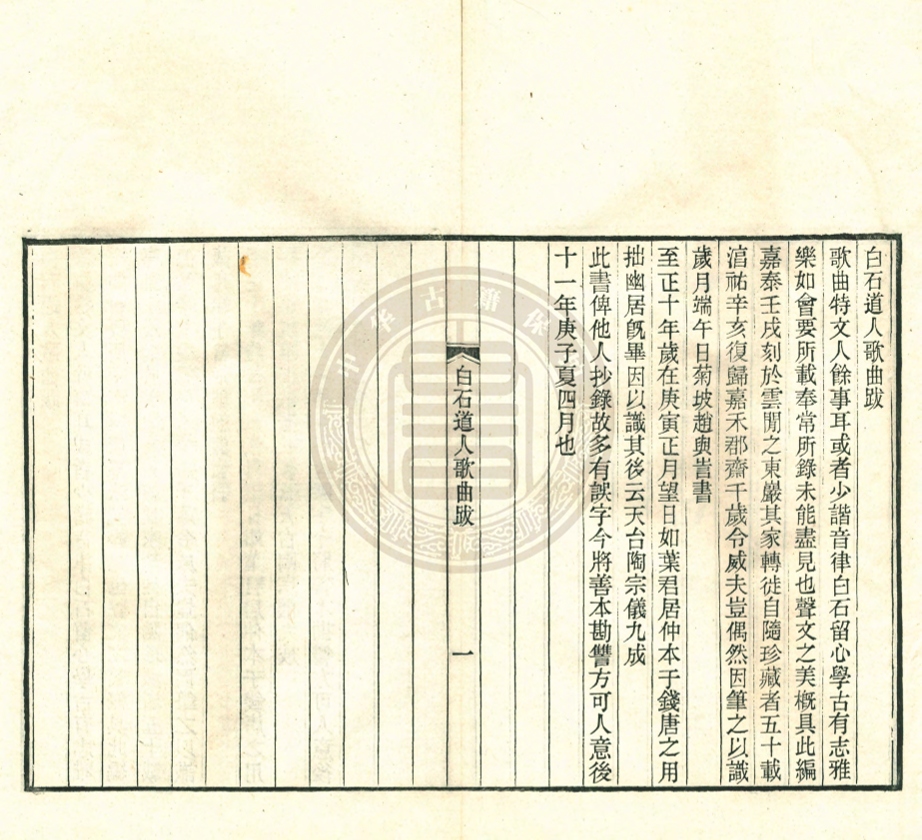 白石道人歌曲跋
歌曲特文人餘事耳或者少諧音律白石留心學古有志雅
樂如會要所載奉常所錄未能盡見也聲文之美概具此編
嘉泰壬戌刻於雲間之東巖其家轉徙自隨珍藏者五十載
淳祐辛亥復歸嘉禾郡齋千歲令威夫豈偶然因筆之以識
歲月端午日菊坡趙與訔書
至正十年歲在庚寅正月望日如葉君居仲本于錢唐之用
拙幽居旣畢因以識其後云天台陶宗儀九成
此書俾他人抄錄故多有誤字今將善本勘讐方可人意後
十一年庚子夏四月也
白石道人歌曲跋
一